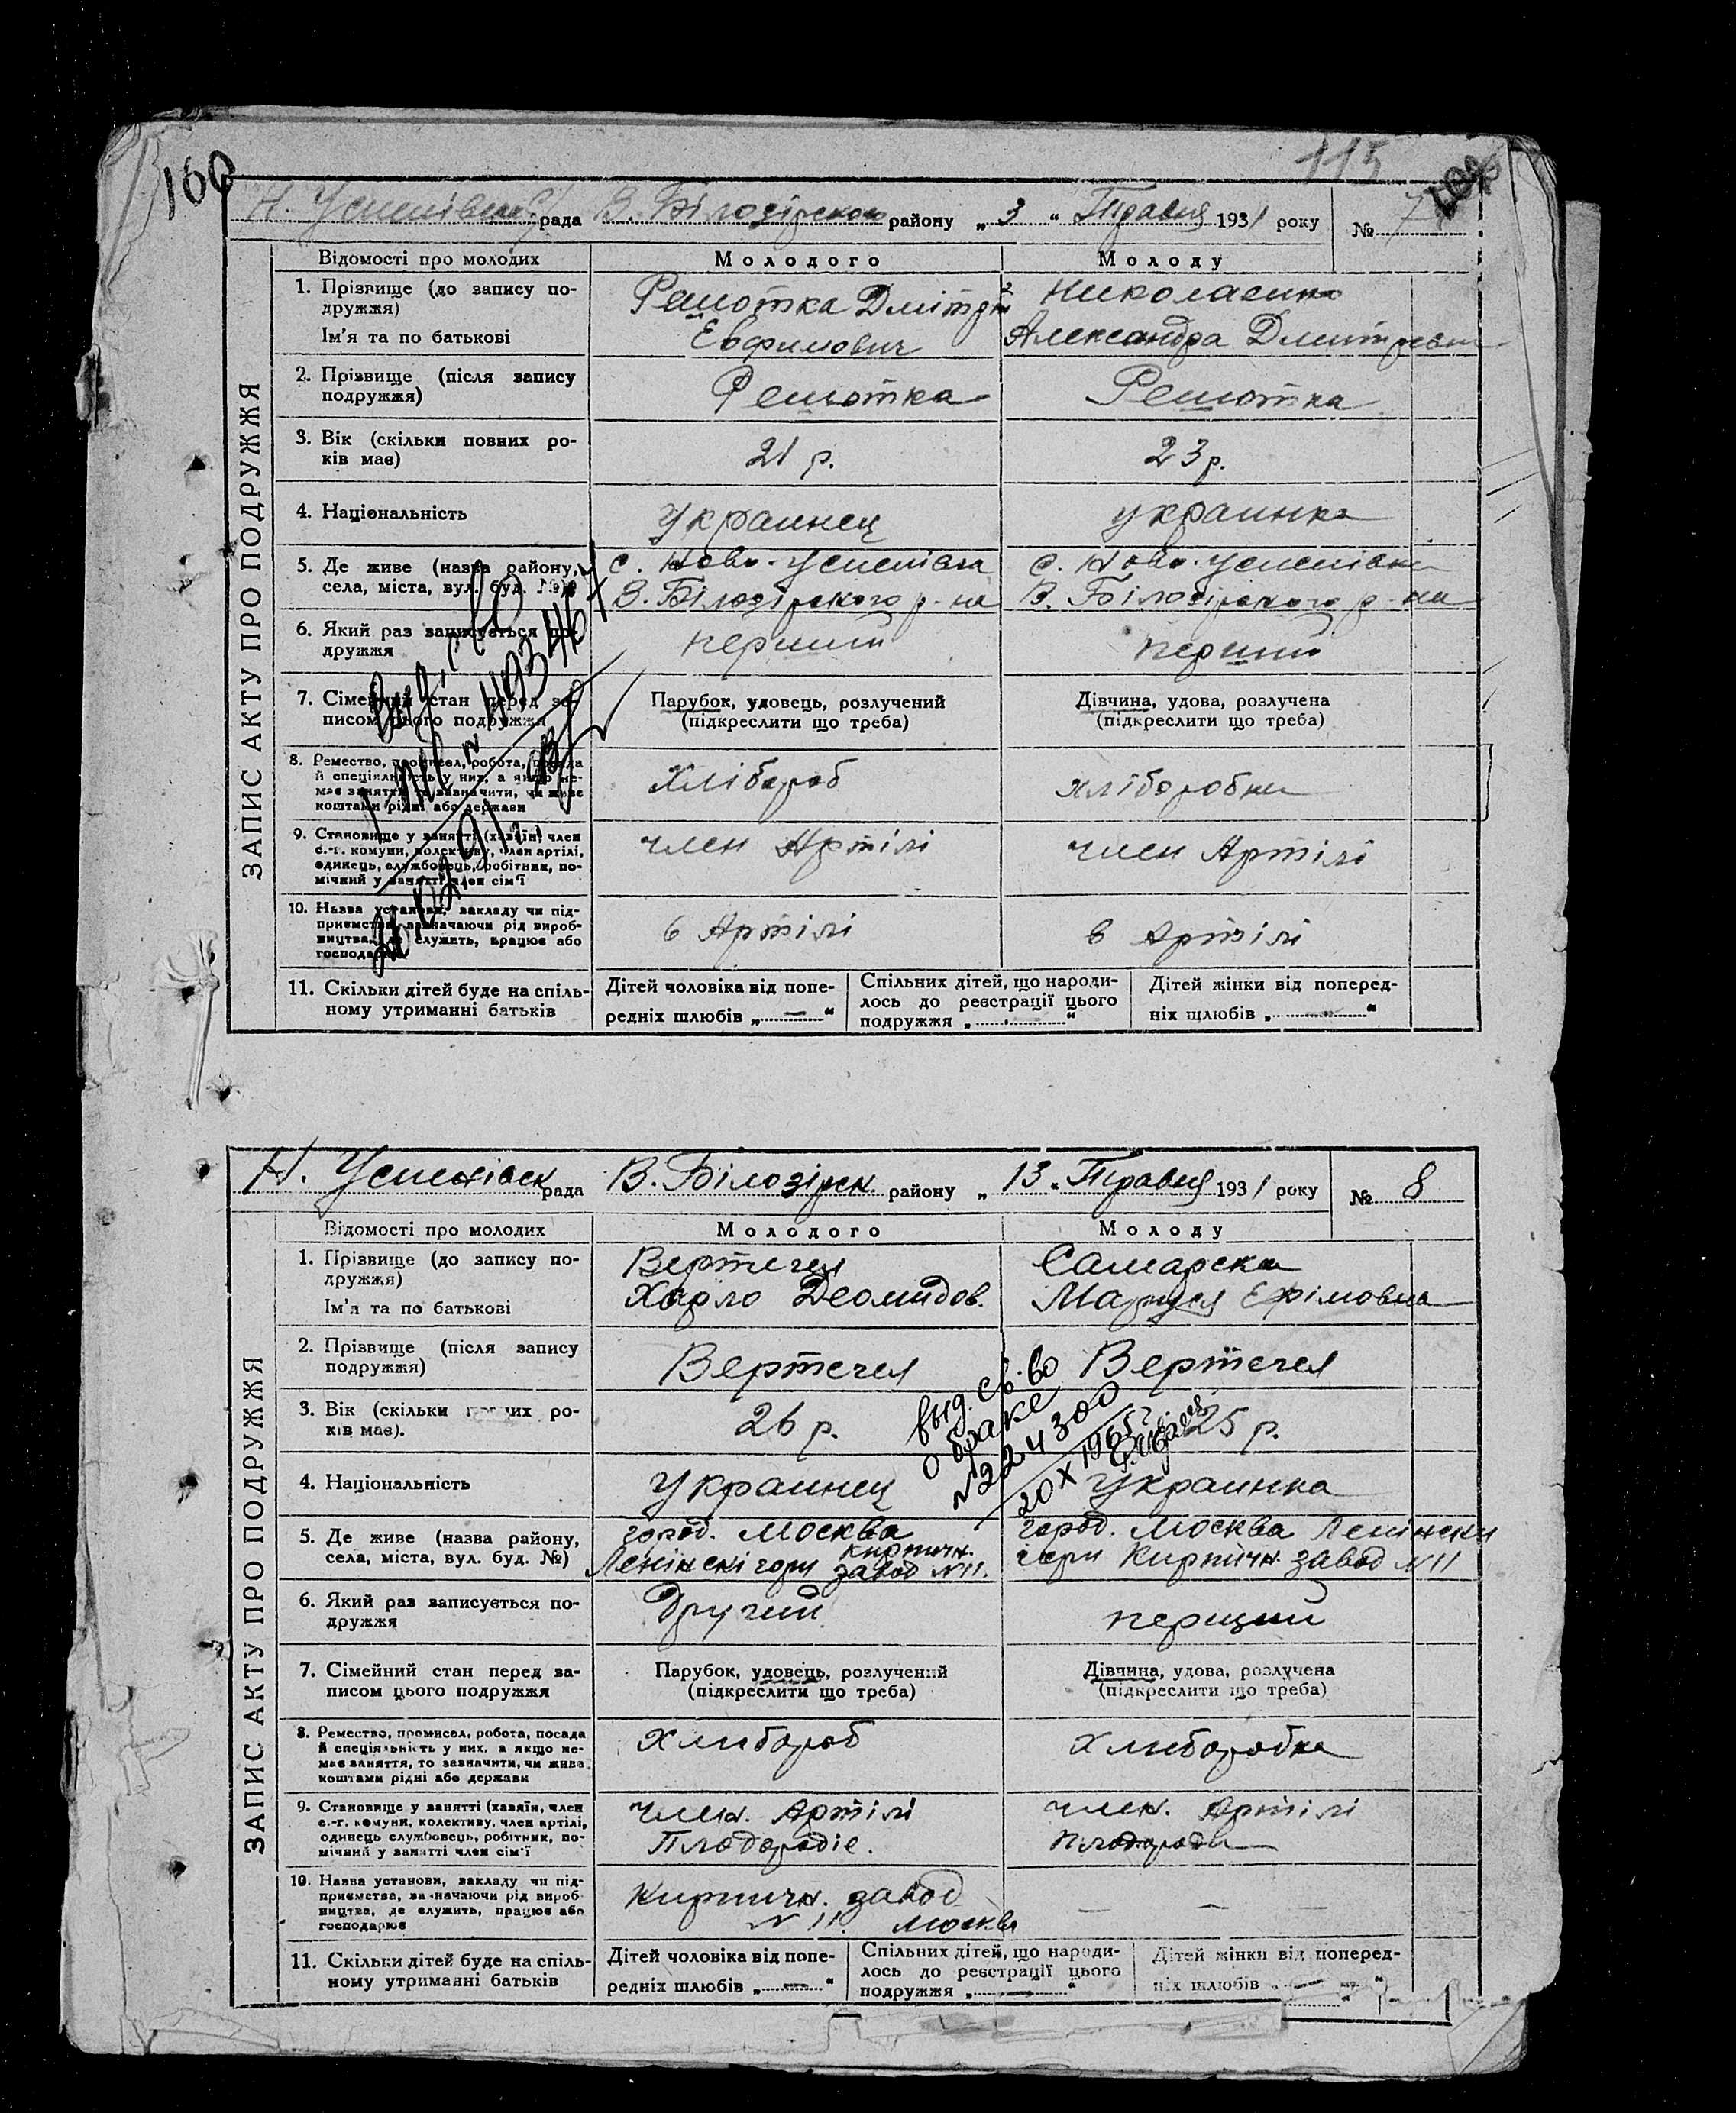 160
115
Н. Успенівськ рада В. Білозірского району „3“ Травня 1931 року № 7
ЗАПИС АКТУ ПРО ПОДРУЖЖЯ
Відомості про молодих Молодого Молоду
1. Прізвище (до запису по-
дружжя)
Ім'я та по батькові
Решотка Дмітрій
Евфимович
Николаенко
Александра Дмитревна
2. Прізвище (після запису
подружжя)
Решотка
Решотка
3. Вік (скільки повних ро-
ків має)
21 р.
23 р.
4. Національність
Украинец
украинка
5. Де живе (назва району,
села, міста, вул. буд. №)
с. Ново-Успенівка
В. Білозірского р-на
с. Ново-Успенівка
В. Білозірского р-на
6. Який раз записується по-
дружжя
перший
перший
7. Сімейний стан перед за-
писом цього подружжя
Парубок, удовець, розлучений
(підкреслити що треба)
Дівчина, удова, розлучена
(підкреслити що треба)
8. Ремество, промисел, робота, посада
й спеціяльність у них, а якщо не-
має заняття, то зазначити, чи живе
коштами рідні або держави
Хлібороб
хліборобка
9. Становище у занятті (хазяїн, член
с.-г. комуни, колективу, член артілі,
одинець, службовець, робітник, по-
мічний у занятті член сім'ї
член Артілі
член Артілі
10. Назва установи, закладу чи під-
приємства, зазначаючи рід вироб-
ництва, де служить, працює або
господарює
в Артілі
в Артілі
11. Скільки дітей буде на спіль-
ному утриманні батьків
Дітей чоловіка від попе-
редніх шлюбів „—“
Спільних дітей, що народи-
лось до реєстрації цього
подружжя „ “
Дітей жінки від поперед-
ніх шлюбів „—“
Н. Успенівск рада В. Білозірск району „13„ Травня 1931 року № 8
ЗАПИС АКТУ ПРО ПОДРУЖЖЯ
Відомості про молодих Молодого Молоду
1. Прізвище (до запису по-
дружжя)
Ім'я та по батькові
Вертечел
Харло Деомидов.
Самарска
Маруся Ефімовна
2. Прізвище (після запису
подружжя)
Вертечел
Вертечел
3. Вік (скільки повних ро-
ків має).
26 р.
25 р.
выд. св-во
о браке
№ 224300
20 X 1965г
4. Національність
Украинец
Украинка
5. Де живе (назва району,
села, міста, вул. буд. №)
город. Москва
Ленінскі гори кирпичн. завод №11.
город. Москва Ленінски
гори Кирпичн. завод №11
6. Який раз записується по-
дружжя
Другий
перщий
7. Сімейний стан перед за-
писом цього подружжя
Парубок, удовець, розлучений
(підкреслити що треба)
Дівчина, удова, розлучена
(підкреслити що треба)
8. Ремество, промисел, робота, посада
й спеціяльність у них, а якщо не-
має заняття, то зазначити, чи живе
коштами рідні або держави
Хлибороб
Хлиборобка
9. Становище у занятті (хазяїн, член
с.-г. комуни, колективу, член артілі,
одинець службовець, робітник, по-
мічний у занятті член сім'ї
член. Артілі
Плодородіе.
член. Артілі
плодороди
10. Назва установи, закладу чи під-
приємства, зазначаючи рід вироб-
ництва, де служить, працює або
господарює
Кирпичн. завод
№ 11. Москва
— — —
11. Скільки дітей буде на спіль-
ному утриманні батьків
Дітей чоловіка від попе-
редніх шлюбів „—“
Спільних дітей, що народи-
лось до реєстрації цього
подружжя „—“
Дітей жінки від поперед-
ніх шлюбів „—“